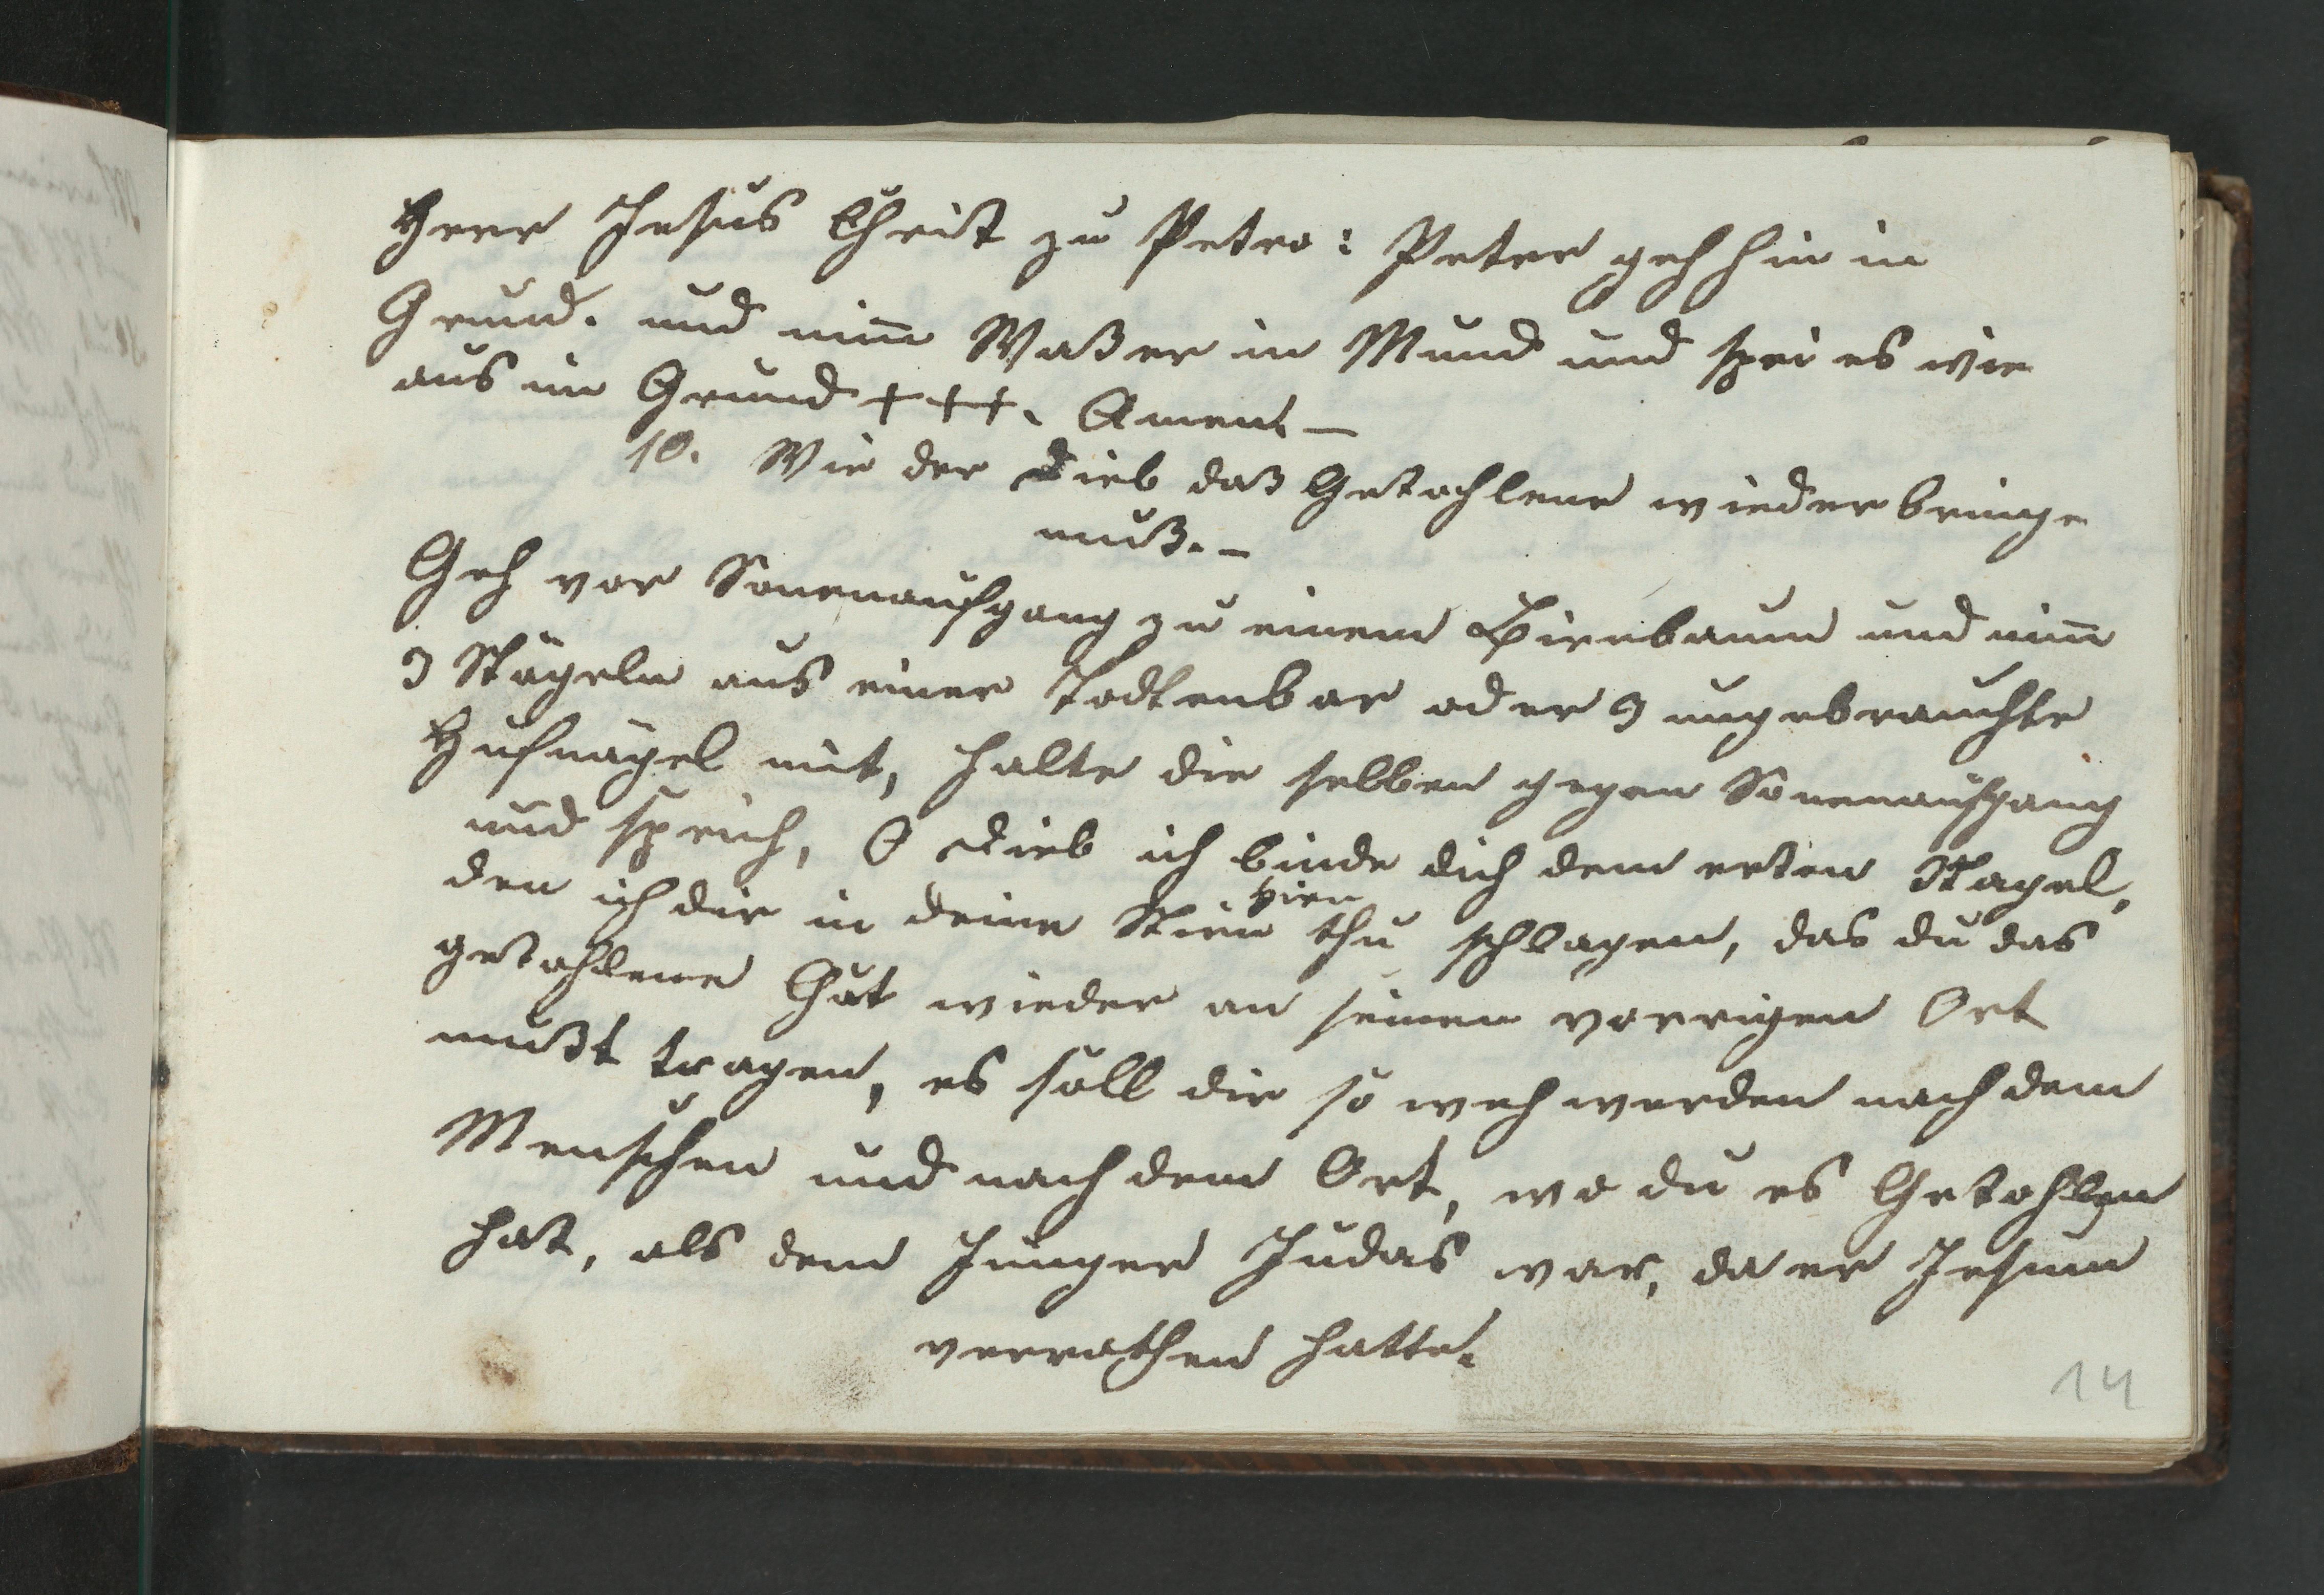 Herr Jesus Christ zu Petro: Peter geh hin in
Grund. und nim̄ Waßer in Mund und spei es wie
aus im Grund +++. Amen. —
10. Wie der Dieb daß Gestohlene wiederbringe
muß. —
Geh vor Sonenaufgang zu einem Birnbaum und nim̄
3 Nägeln aus einer Todtenbar oder 3 ungebrauchte
Hufnägel mit, halte die selben gegen Sonenaufgang
und sprich, O Dieb ich binde dich dem ersten Nagel,
Hirn
den ich dir in deine Stirn thu schlagen, das du das
gestohlene Gut wieder an seinen vorrigen Ort
mußt tragen, es soll dir so weh werden nach dem
Menschen und nach dem Ort, wo du es Gestohlen
hast, als dem Junger Judas war, da er Jesum
verrathen hatte.
14